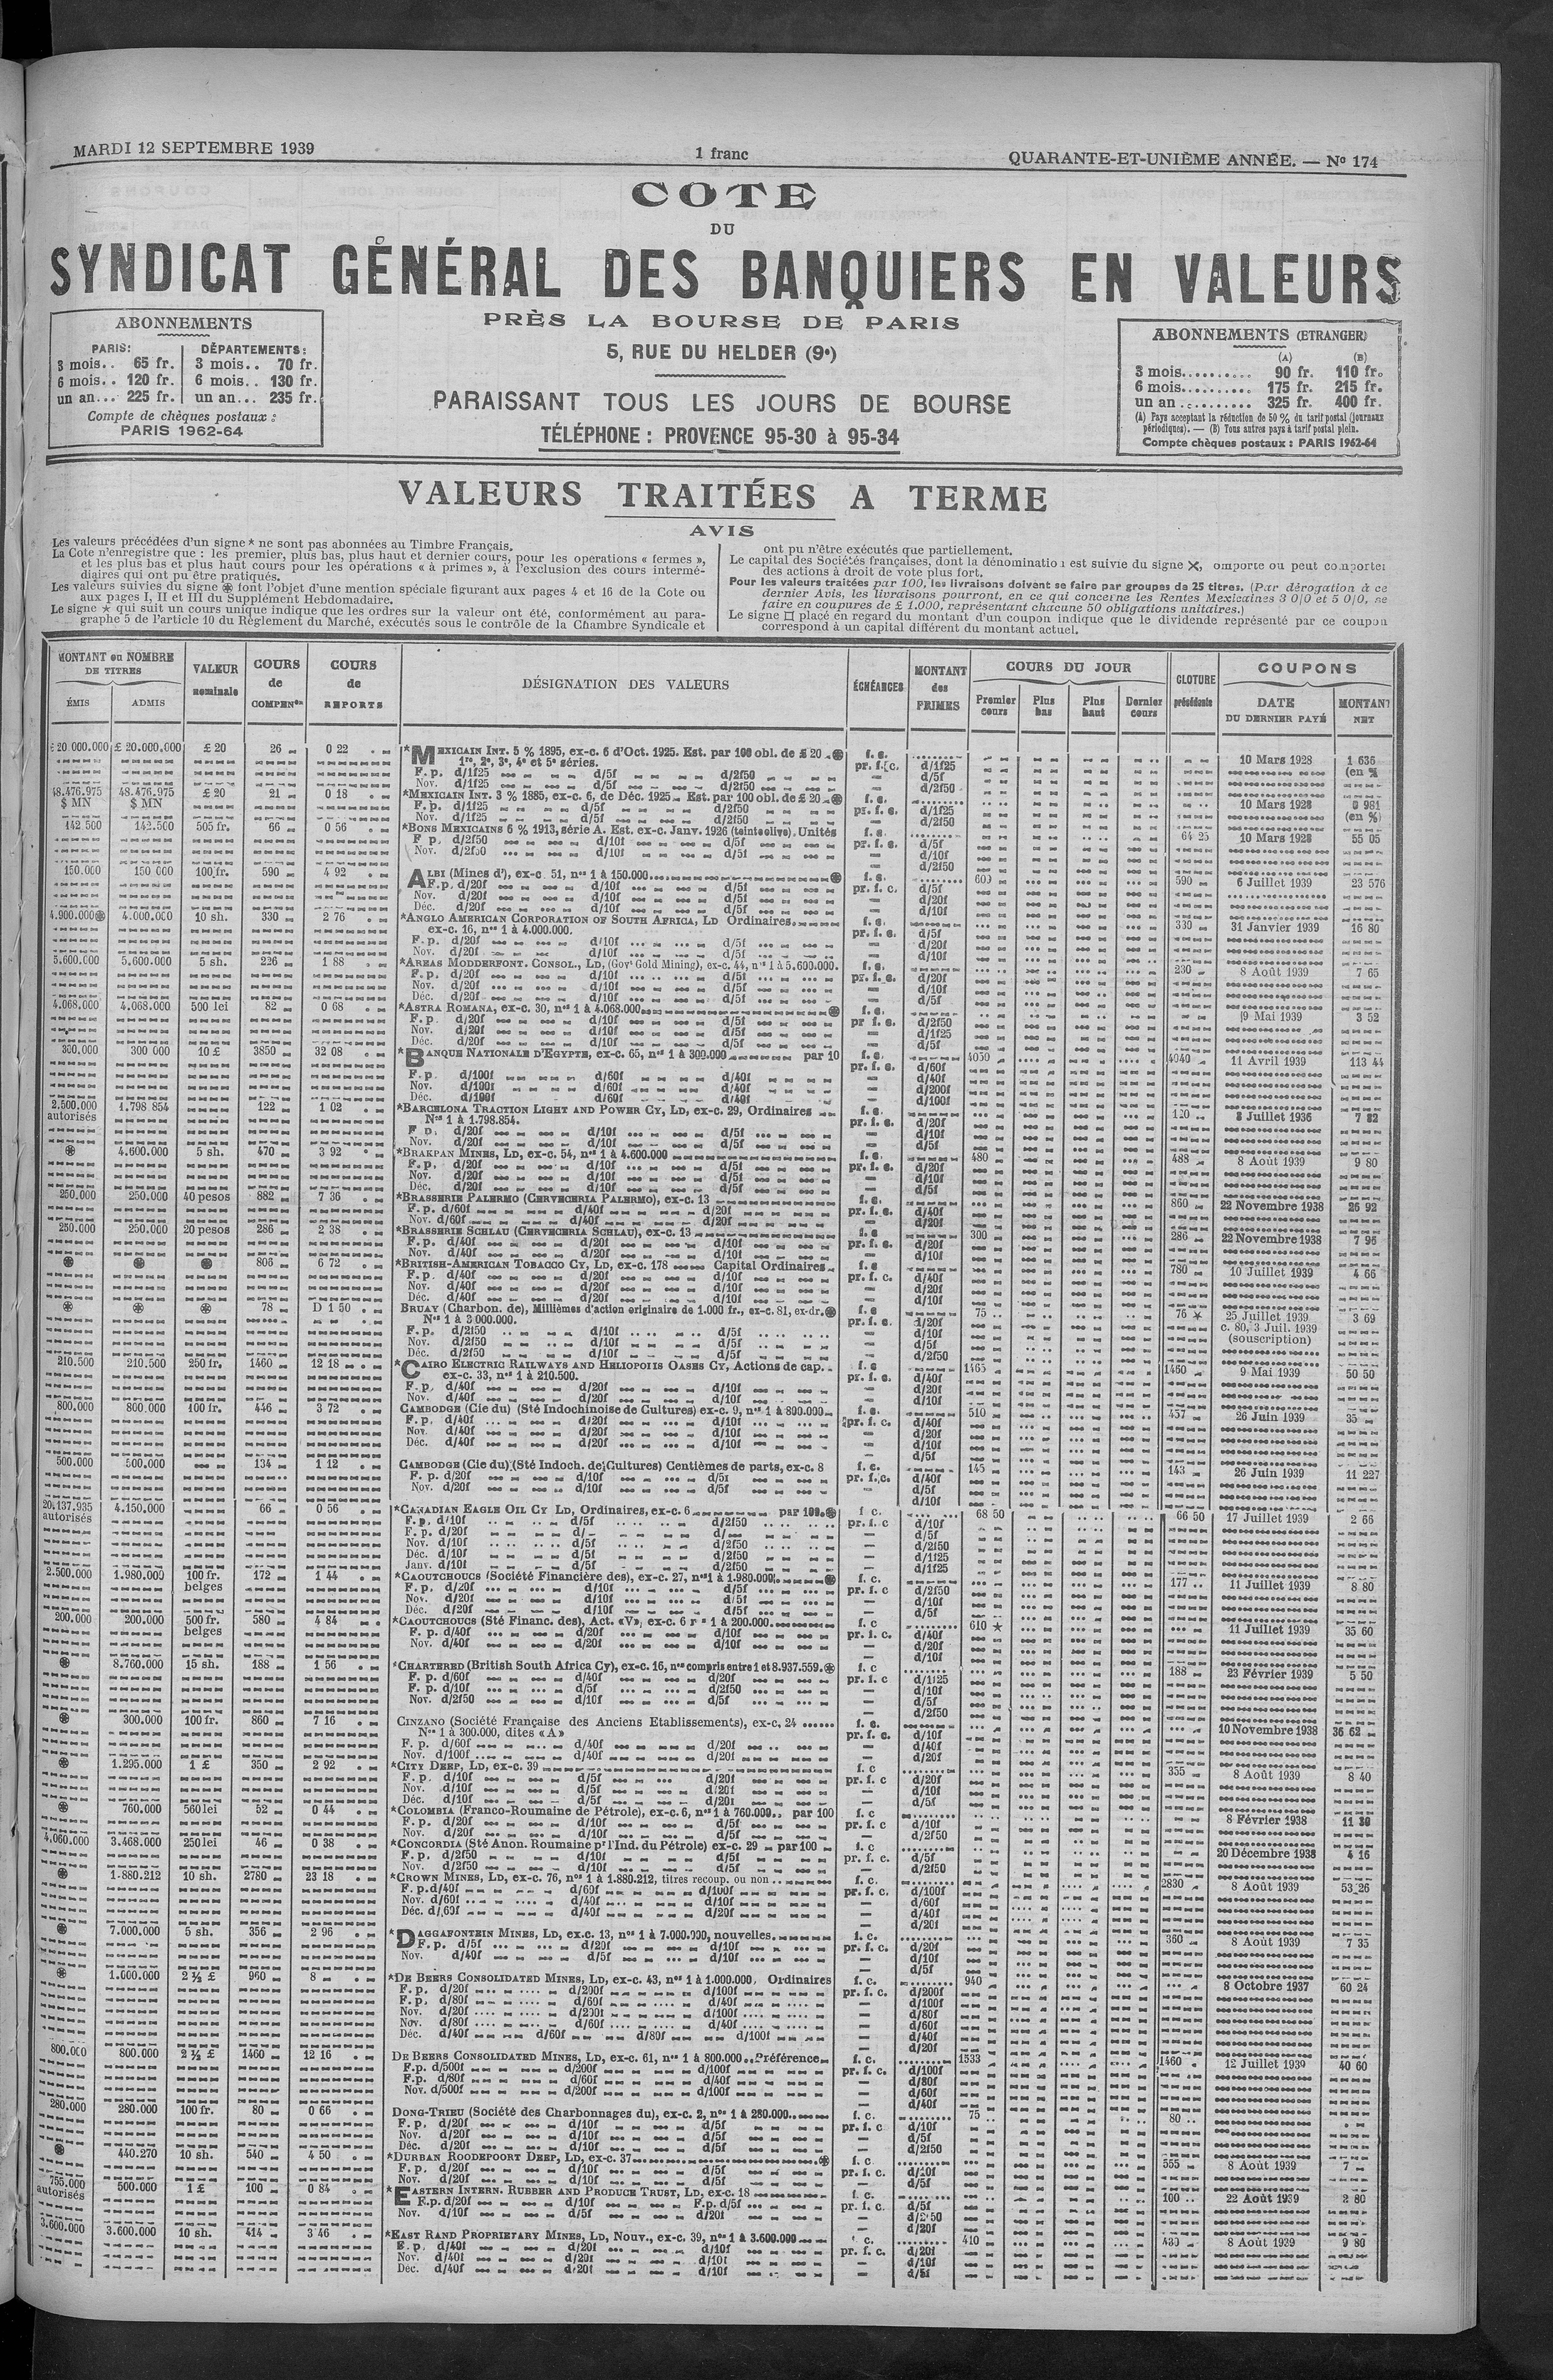 MARDI 12 SEPTEMBRE 1939
1 franc
QUARANTE-ET-UNIÈME ANNÉE. — No 174
COTE
DU
SYNDICAT GÉNÉRAL DES BANQUIERS EN VALEURS
PRÈS LA BOURSE DE PARIS
5, RUE DU HELDER (9e)
PARAISSANT TOUS LES JOURS DE BOURSE
TÉLÉPHONE : PROVENCE 95-30 à 95-34
ABONNEMENTS
PARIS: DÉPARTEMENTS:
3 mois.. 65 fr. 3 mois.. 70 fr.
6 mois.. 120 fr. 6 mois.. 130 fr.
un an... 225 fr. un an... 235 fr.
Compte de chèques postaux :
PARIS 1962-64
ABONNEMENTS (ETRANGER)
(A) (B)
3 mois.......... 90 fr. 110 fr.
6 mois.......... 175 fr. 215 fr.
un an .......... 325 fr. 400 fr.
(A) Pays acceptant la réduction de 50 % du tarif postal (journaux
périodiques). — (B) Tous autres pays à tarif postal plein.
Compte chèques postaux : PARIS 1962-64
VALEURS TRAITÉES A TERME
AVIS
Les valeurs précédées d'un signe * ne sont pas abonnées au Timbre Français.
La Cote n'enregistre que : les premier, plus bas, plus haut et dernier cours, pour les opérations « fermes »,
et les plus bas et plus haut cours pour les opérations « à primes », à l'exclusion des cours intermé-
diaires qui ont pu être pratiqués.
Les valeurs suivies du signe ⊛ font l'objet d'une mention spéciale figurant aux pages 4 et 16 de la Cote ou
aux pages I, II et III du Supplément Hebdomadaire.
Le signe ★ qui suit un cours unique indique que les ordres sur la valeur ont été, conformément au para-
graphe 5 de l'article 10 du Règlement du Marché, exécutés sous le contrôle de la Chambre Syndicale et
ont pu n'être exécutés que partiellement.
Le capital des Sociétés françaises, dont la dénomination est suivie du signe ✕, omporte ou peut comporter
des actions à droit de vote plus fort.
Pour les valeurs traitées par 100, les livraisons doivent se faire par groupes de 25 titres. (Par dérogation à ce
dernier Avis, les livraisons pourront, en ce qui concerne les Rentes Mexicaines 3 0/0 et 5 0/0, se
faire en coupures de £ 1.000, représentant chacune 50 obligations unitaires.)
Le signe □ placé en regard du montant d'un coupon indique que le dividende représenté par ce coupon
correspond à un capital différent du montant actuel.
MONTANT ou NOMBRE DE TITRES
ÉMIS ADMIS
VALEUR nominale
COURS de COMPENon
COURS de REPORTS
DÉSIGNATION DES VALEURS
ÉCHÉANCES
MONTANT des PRIMES
COURS DU JOUR
Premier cours Plus bas Plus haut Dernier cours
CLOTURE précédente
COUPONS
DATE DU DERNIER PAYÉ
MONTANT NET
£ 20 000.000 £ 20.000.000 £ 20 26 0 22 *MEXICAIN INT. 5 % 1895, ex-c. 6 d'Oct. 1925. Est. par 100 obl. de £ 20 ⊛ f. c. 10 Mars 1928 1 636
1re, 2e, 3e, 4e et 5e séries. pr. f. c. d/1f25 (en %
F. p. d/1f25 d/5f d/2f50 — d/5f
Nov. d/1f25 d/5f d/2f50 — d/2f50
48.476.975 48.476.975 £ 20 21 0 18 *MEXICAIN INT. 3 % 1885, ex-c. 6, de Déc. 1925. Est. par 100 obl. de £ 20 ⊛ f. c. 10 Mars 1928 0 981
$ MN $ MN F. p. d/1f25 d/5f d/2f50 pr. f. c. d/1f25 (en %)
Nov. d/1f25 d/5f d/2f50 — d/2f50
142 500 142.500 505 fr. 66 0 56 *BONS MEXICAINS 6 % 1913, série A. Est. ex-c. Janv. 1926 (teinte olive). Unités f. c. 64 25 10 Mars 1928 55 05
F p. d/2f50 d/10f d/5f pr. f. c. d/5f
Nov. d/2f50 d/10f d/5f — d/10f
— d/2f50
150.000 150 000 100 fr. 590 4 92 ALBI (Mines d'), ex-c 51, nos 1 à 150.000 ⊛ f. c. 600 590 6 Juillet 1939 23 576
F. p. d/20f d/10f d/5f pr. f. c. d/5f
Nov. d/20f d/10f d/5f — d/20f
Déc. d/20f d/10f d/5f — d/10f
4.900.000⊛ 4.000.000 10 sh. 330 2 76 *ANGLO AMERICAN CORPORATION OF SOUTH AFRICA, LD Ordinaires f. c. 330 31 Janvier 1939 16 80
ex-c. 16, nos 1 à 4.000.000. pr. f. c. d/5f
F. p. d/20f d/10f d/5f — d/20f
Nov. d/20f d/10f d/5f — d/10f
5.600.000 5,600.000 5 sh. 226 1 88 *AREAS MODDERFONT. CONSOL., LD, (Govt Gold Mining), ex-c. 44, nos 1 à 5.600.000. f. c. 230 8 Août 1939 7 65
F. p. d/20f d/10f d/5f pr. f. c. d/20f
Nov. d/20f d/10f d/5f — d/10f
Déc. d/20f d/10f d/5f — d/5f
4.068.000 4.068.000 500 lei 82 0 68 *ASTRA ROMANA, ex-c. 30, nos 1 à 4.068.000 ⊛ f. c. 19 Mai 1939 3 52
F. p. d/20f d/10f d/5f pr f. c. d/2f50
Nov. d/20f d/10f d/5f — d/1f25
Déc. d/20f d/10f d/5f — d/5f
300.000 300 000 10 £ 3850 32 08 *BANQUE NATIONALE D'EGYPTE, ex-c. 65, nos 1 à 300.000 par 10 f. c. 4050 4040 11 Avril 1939 113 44
pr. f. c. d/60f
F. p. d/100f d/60f d/40f — d/40f
Nov. d/100f d/60f d/40f — d/200f
Déc. d/100f d/60f d/40f — d/100f
2.500.000 1.798 854 122 1 02 *BARCELONA TRACTION LIGHT AND POWER CY, LD, ex-c. 29, Ordinaires f. c. 120 8 Juillet 1936 7 82
autorisés Nos 1 à 1.798.854. pr. f. c. d/20f
F p. d/20f d/10f d/5f — d/10f
Nov. d/20f d/10f d/5f — d/5f
⊛ 4.600.000 5 sh. 470 3 92 *BRAKPAN MINES, LD, ex-c. 54, nos 1 à 4.600.000 f. c. 480 488 8 Août 1939 9 80
F. p. d/20f d/10f d/5f pr. f. c. d/20f
Nov. d/20f d/10f d/5f — d/10f
Déc. d/20f d/10f d/5f — d/5f
250.000 250.000 40 pesos 882 7 36 *BRASSERIE PALERMO (CERVECERIA PALERMO), ex-c. 13 f. c. 860 22 Novembre 1938 26 92
F. p. d/60f d/40f d/20f pr. f. c. d/40f
Nov. d/60f d/40f d/20f — d/20f
250.000 250.000 20 pesos 286 2 38 *BRASSERIE SCHLAU (CERVECERIA SCHLAU), ex-c. 13 f. c 300 286 22 Novembre 1938 7 96
F. p. d/40f d/20f d/10f pr. f. c. d/20f
Nov. d/40f d/20f d/10f — d/10f
⊛ ⊛ ⊛ 806 6 72 *BRITISH-AMERICAN TOBACCO CY, LD, ex-c. 178 Capital Ordinaires f. c 780 10 Juillet 1939 4 66
F. p. d/40f d/20f d/10f pr. f. c. d/40f
Nov. d/40f d/20f d/10f — d/20f
Déc. d/40f d/20f d/10f — d/10f
⊛ ⊛ ⊛ 78 D 1 50 BRUAY (Charbon. de), Millièmes d'action originaire de 1.000 fr., ex-c. 81, ex-dr. ⊛ f. c 75 76 ★ 25 Juillet 1939 3 69
Nos 1 à 3 000.000. pr. f. c. d/20f c. 80, 3 Juil. 1939
F. p. d/2f50 d/10f d/5f — d/10f (souscription)
Nov. d/2f50 d/10f d/5f — d/5f
Déc. d/2f50 d/10f d/5f — d/2f50
210.500 210.500 250 fr. 1460 12 18 *CAIRO ELECTRIC RAILWAYS AND HELIOPOLIS OASES CY, Actions de cap. f. c 1465 1460 9 Mai 1939 50 50
ex-c. 33, nos 1 à 210.500. pr. f. c. d/40f
F. p. d/40f d/20f d/10f — d/20f
Nov. d/40f d/20f d/10f — d/10f
800.000 800.000 100 fr. 446 3 72 CAMBODGE (Cie du) (Sté Indochinoise de Cultures) ex-c. 9, nos 1 à 800.000 f. c. 510 457 26 Juin 1939 35
F. p. d/40f d/20f d/10f pr. f. c. d/40f
Nov. d/40f d/20f d/10f — d/20f
Déc. d/40f d/20f d/10f — d/10f
— d/5f
500.000 500.000 134 1 12 CAMBODGE (Cie du) (Sté Indoch. de Cultures) Centièmes de parts, ex-c. 8 f. c. 145 143 26 Juin 1939 11 227
F. p. d/20f d/10f d/5f pr. f. c. d/40f
Nov. d/20f d/10f d/5f — d/5f
— d/10f
20.137.935 4.150.000 66 0 56 *CANADIAN EAGLE OIL CY LD, Ordinaires, ex-c. 6 par 100 ⊛ f c. 68 50 66 50 17 Juillet 1939 2 66
autorisés F. p. d/10f d/5f d/2f50 pr. f. c d/10f
F. p. d/20f d/ d/ — d/5f
Nov. d/10f d/5f d/2f50 — d/2f50
Déc. d/10f d/5f d/2f50 — d/1f25
Janv. d/10f d/5f d/2f50 — d/1f25
2.500.000 1.980.000 100 fr. 172 1 44 *CAOUTCHOUCS (Société Financière des), ex-c. 27, nos 1 à 1.980.000 ⊛ f. c. 177 11 Juillet 1939 8 80
belges F. p. d/20f d/10f d/5f pr. f. c d/2f50
Nov. d/20f d/10f d/5f — d/10f
Déc. d/20f d/10f d/5f — d/5f
200.000 200.000 500 fr. 580 4 84 *CAOUTCHOUCS (Sté Financ. des), Act. «V», ex-c. 6 1 à 200.000 f. c 610 ★ 11 Juillet 1939 35 60
belges F. p. d/40f d/20f d/10f pr. f. c. d/40f
Nov. d/40f d/20f d/10f — d/20f
— d/10f
⊛ 8.760.000 15 sh. 188 1 56 *CHARTERED (British South Africa Cy), ex-c. 16, nos compris entre 1 et 8.937.559. ⊛ f. c 188 23 Février 1939 5 50
F. p. d/60f d/40f d/20f pr. f. c d/1f25
F. p. d/10f d/5f d/2f50 — d/10f
Nov. d/2f50 d/10f d/5f — d/5f
— d/2f50
⊛ 300.000 100 fr. 860 7 16 CINZANO (Société Française des Anciens Etablissements), ex-c. 24 f. c. 10 Novembre 1938 36 63
Nos 1 à 300.000, dites «A» pr. f. c. d/10f
F. p. d/60f d/40f d/20f — d/40f
Nov. d/100f d/40f d/20f — d/20f
⊛ 1.295.000 1 £ 350 2 92 *CITY DEEP, LD, ex-c. 39 f. c 355 8 Août 1939 8 40
F. p. d/10f d/5f d/20f pr. f. c d/20f
Nov. d/10f d/5f d/20f — d/10f
Déc. d/10f d/5f d/20f — d/5f
⊛ 760.000 560 lei 52 0 44 *COLOMBIA (Franco-Roumaine de Pétrole), ex-c. 6, nos 1 à 760.000 par 100 f. c 8 Février 1938 11 30
F. p. d/20f d/10f d/5f pr. f. c d/10f
Nov. d/20f d/10f d/5f — d/2f50
4,060.000 3.468.000 250 lei 46 0 38 *CONCORDIA (Sté Anon. Roumaine pr l'Ind. du Pétrole) ex-c. 29 par 100 f. c 20 Décembre 1938 4 16
F. p. d/2f50 d/10f d/5f pr. f. c. d/5f
Nov. d/2f50 d/10f d/5f — d/2f50
⊛ 1.880.212 10 sh. 2780 23 18 *CROWN MINES, LD, ex-c. 76, nos 1 à 1.880.212, titres recoup. ou non f. c. 2830 8 Août 1939 53 26
F. p. d/40f d/60f d/100f pr. f. c. d/100f
Nov. d/60f d/40f d/10f — d/60f
Déc. d/60f d/40f d/20f — d/40f
— d/20f
⊛ 7.000.000 5 sh. 356 2 96 *DAGGAFONTEIN MINES, LD, ex-c. 13, nos 1 à 7.000.000, nouvelles f. c. 360 8 Août 1939 7 35
F. p. d/5f d/20f d/10f pr. f. c. d/20f
Nov. d/40f d/5f d/10f — d/10f
— d/5f
⊛ 1.000.000 2 ½ £ 960 8 *DE BEERS CONSOLIDATED MINES, LD, ex-c. 43, nos 1 à 1.000.000, Ordinaires f. c. 940 8 Octobre 1937 60 24
F. p. d/20f d/200f d/100f pr. f. c. d/200f
F. p. d/80f d/60f d/40f — d/100f
Nov. d/20f d/200f d/100f — d/80f
Nov. d/80f d/60f d/40f — d/60f
Déc. d/40f d/60f d/80f d/100f — d/40f
— d/20f
800.000 800.000 2 ½ £ 1460 12 16 DE BEERS CONSOLIDATED MINES, LD, ex-c. 61, nos 1 à 800.000 Préférence f. c. 1533 1460 12 Juillet 1939 40 60
F. p. d/500f d/200f d/100f pr. f. c. d/100f
F. p. d/80f d/60f d/40f — d/80f
Nov. d/500f d/200f d/100f — d/60f
— d/40f
280.000 280.000 100 fr. 80 0 66 DONG-TRIEU (Société des Charbonnages du), ex-c. 2, nos 1 à 280.000 f. c. 75 80
F. p. d/20f d/10f d/5f pr. f. c d/10f
Nov. d/20f d/10f d/5f — d/5f
Déc. d/20f d/10f d/5f — d/2f50
⊛ 440.270 10 sh. 540 4 50 *DURBAN ROODEPOORT DEEP, LD, ex-c. 37 ⊛ f. c 555 8 Août 1939 7
F. p. d/20f d/10f d/5f pr. f. c. d/10f
Nov. d/20f d/10f d/5f — d/5f
755.000 500.000 1 £ 100 0 84 *EASTERN INTERN. RUBBER AND PRODUCE TRUST, LD, ex-c. 18 f. c. 100 22 Août 1939 2 80
autorisés F. p. d/20f d/10f F. p. d/5f pr. f. c. d/5f
Nov. d/10f d/5f d/20f — d/2f50
— d/20f
3.600.000 3.600.000 10 sh. 414 3 46 *EAST RAND PROPRIETARY MINES, LD, Nouv., ex-c. 39, nos 1 à 3.600.000 c. 410 430 8 Août 1939 9 80
F. p. d/40f d/20f d/10f pr. f. c. d/20f
Nov. d/40f d/20f d/10f — d/10f
Déc. d/40f d/20f d/10f — d/5f